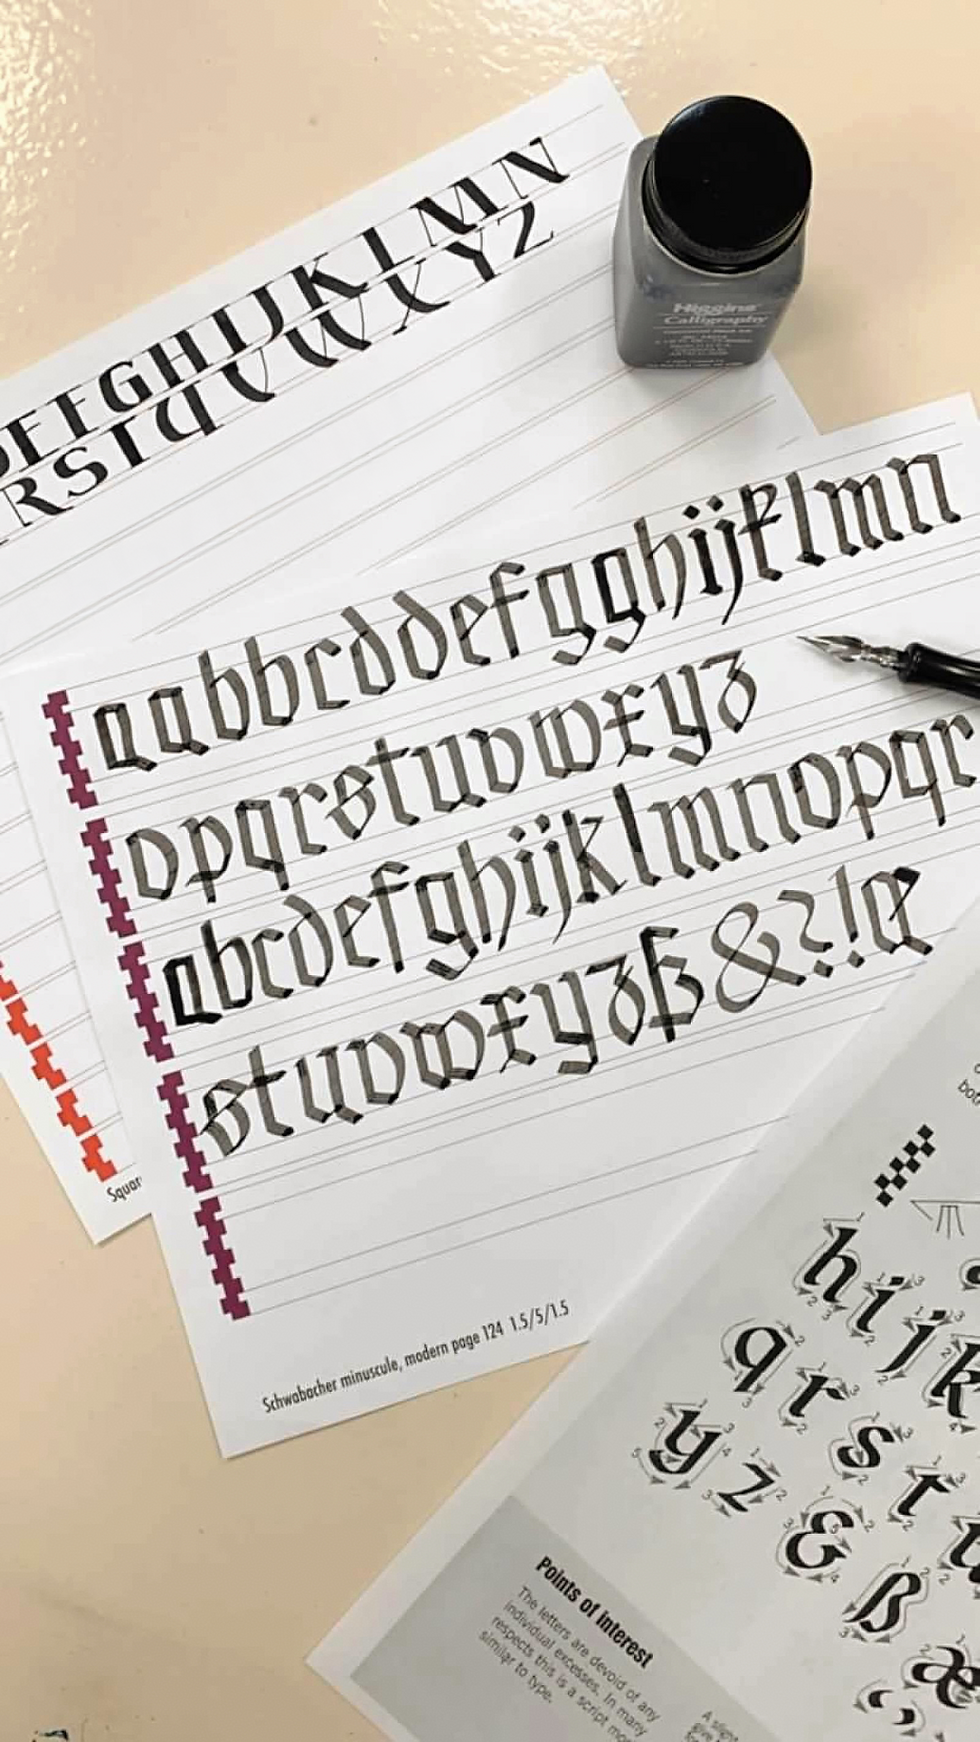 EFGHIJKLMN
RSTUVWXYZ
Higgins
Calligraphy
aabbcddefgghijklmn
opqrstuvwxyz
abcdefghijklmnopqr
stuvwxyzß&?!æ
Schwabacher minuscule, modern page 124 1.5/5/1.5
Squar
h i j k
q r s t u
y z & ß æ
Points of interest
The letters are devoid of any
individual excesses. In many
respects this is a script mo
similar to type.
A sligh
give